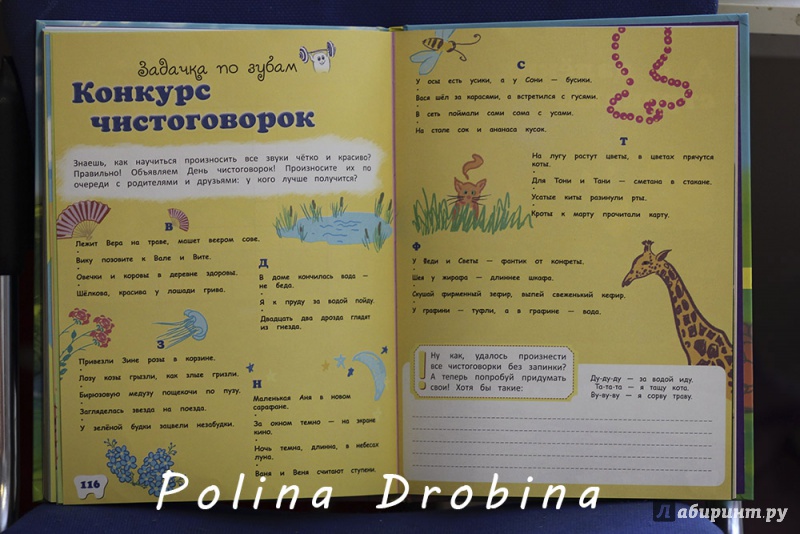 Задачка по зубам
Конкурс
чистоговорок
Знаешь, как научиться произносить все звуки чётко и красиво?
Правильно! Объявляем День чистоговорок! Произносите их по
очереди с родителями и друзьями: у кого лучше получится?
В
Лежит Вера на траве, машет веером сове.
Вику позовите к Вале и Вите.
Овечки и коровы в деревне здоровы.
Шёлкова, красива у лошади грива.
З
Привезли Зине розы в корзине.
Лозу козы грызли, как злые гризли.
Бирюзовую медузу пощекочи по пузу.
Загляделась звезда на поезда.
У зелёной будки зацвели незабудки.
Д
В доме кончилась вода —
не беда.
Я к пруду за водой пойду.
Двадцать два дрозда глядят
из гнезда.
Н
Маленькая Аня в новом
сарафане.
За окном темно — на экране
кино.
Ночь темна, длинна, в небесах
луна.
Ваня и Веня считают ступени.
116
С
У осы есть усики, а у Сони — бусики.
Вася шёл за карасями, а встретился с гусями.
В сеть поймали сами сома с усами.
На столе сок и ананаса кусок.
Т
На лугу растут цветы, в цветах прячутся
коты.
Для Тони и Тани — сметана в стакане.
Усатые киты разинули рты.
Кроты к марту прочитали карту.
Ф
У Феди и Светы — фантик от конфеты.
Шея у жирафа — длиннее шкафа.
Скушай фирменный зефир, выпей свеженький кефир.
У графини — туфли, а в графине — вода.
!
Ну как, удалось произнести
все чистоговорки без запинки?
А теперь попробуй придумать
свои! Хотя бы такие:
Ду-ду-ду — за водой иду.
Та-та-та — я тащу кота.
Ву-ву-ву — я сорву траву.
Polina Drobina
Лабиринт.ру